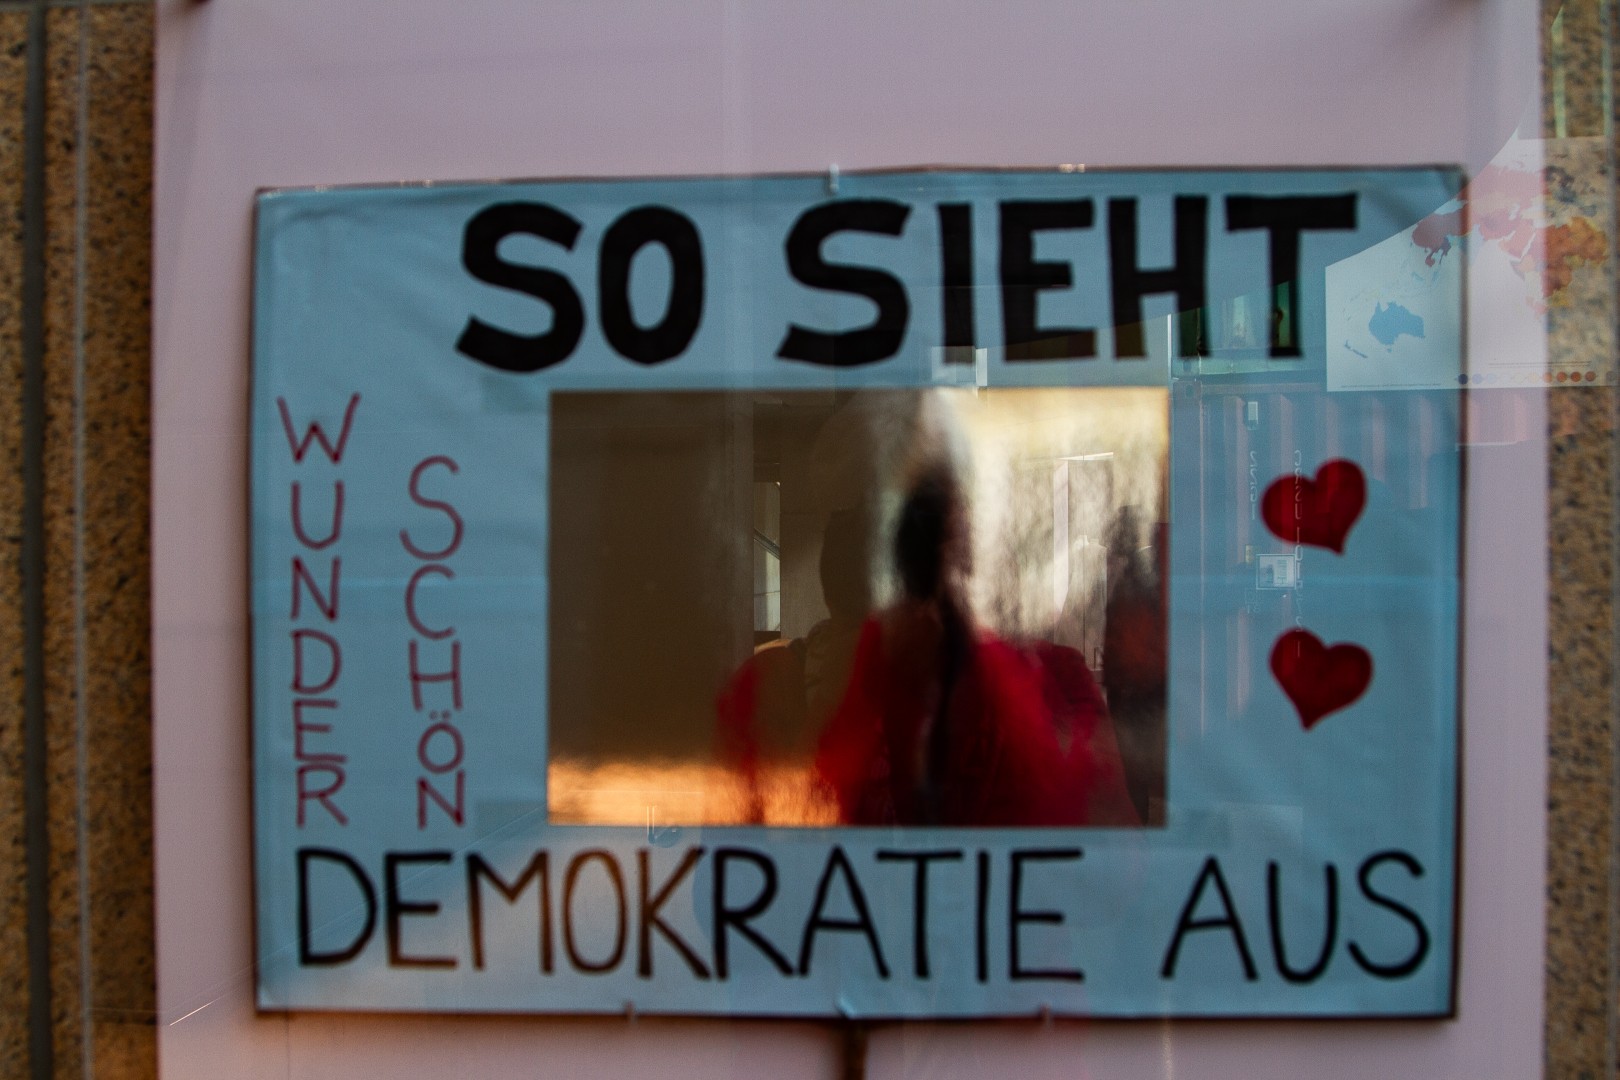 SO SIEHT
WUNDER
SCHÖN
DEMOKRATIE AUS